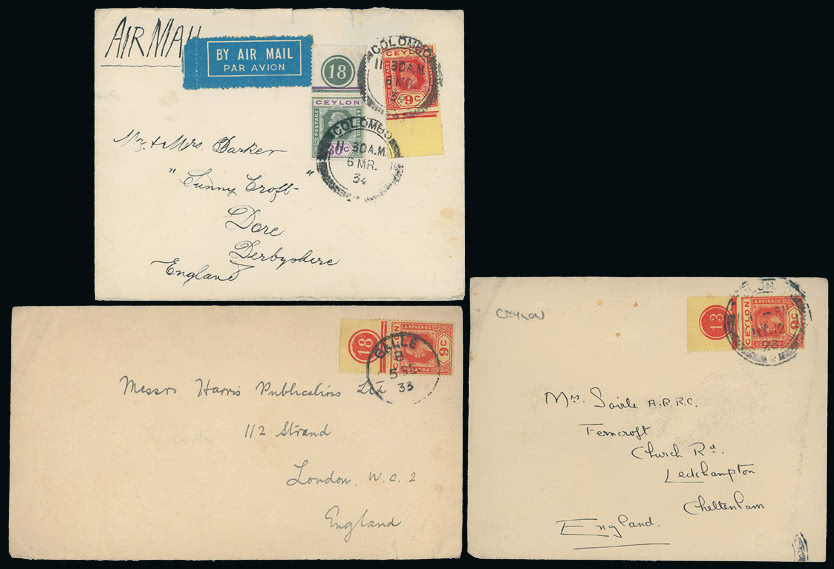 AIR MAIL
BY AIR MAIL
PAR AVION
18
CEYLON
POSTAGE
30c
CEYLON
9c
COLOMBO
11 30 A.M.
6 MR.
34
COLOMBO
11 30 A.M.
6 MR.
34
Mr & Mrs. Barker
"Sunny Croft"
Dore
Derbyshire
England
18
CEYLON
POSTAGE
& REVENUE
9c
GALLE
33
Messrs Harris Publications Ltd
112 Strand
London. W.C. 2
England
CEYLON
13
CEYLON
POSTAGE
& REVENUE
9c
Mrs. A.R.R.C.
Ferncroft
Church Rd.
Leckhampton
Cheltenham
England.